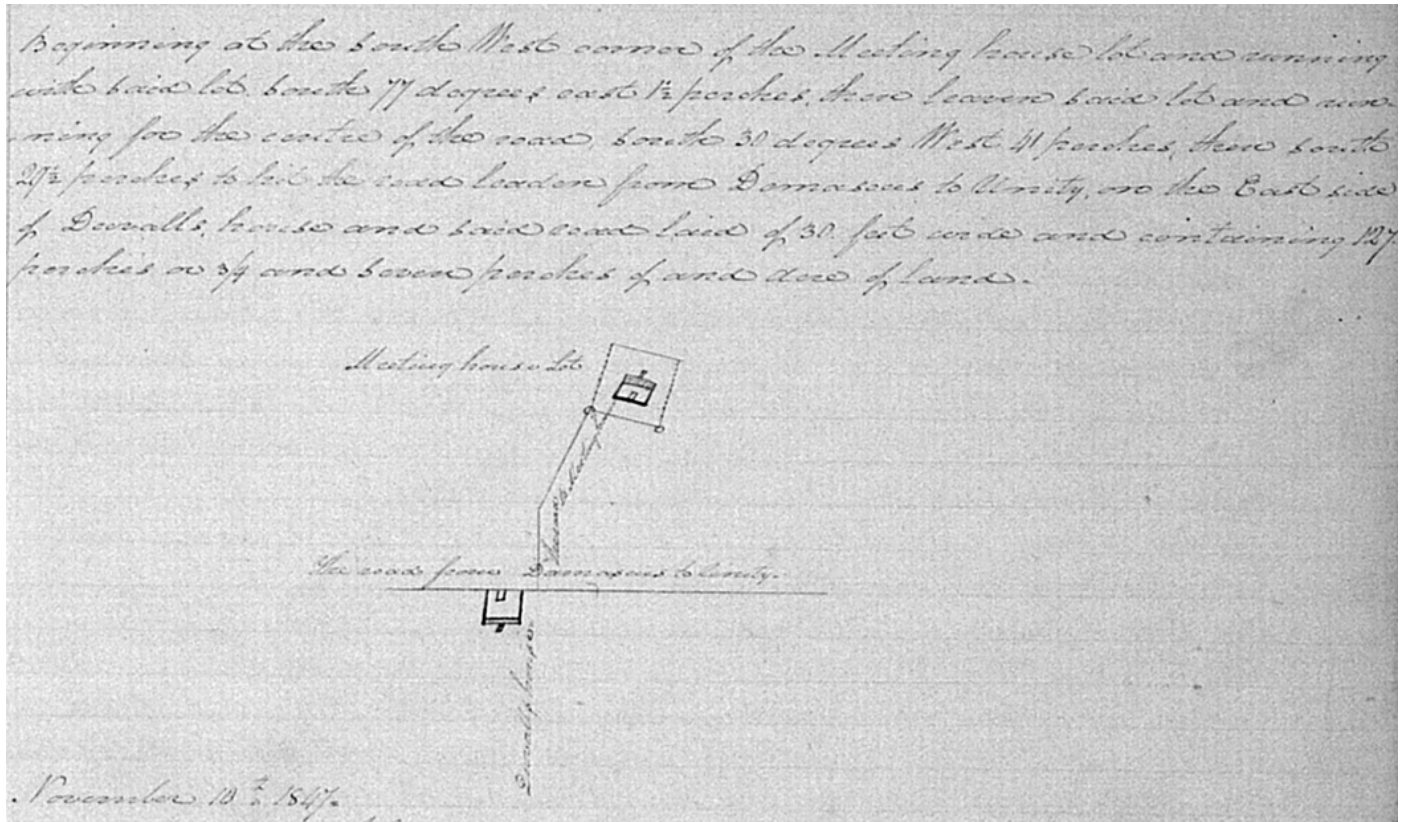 Beginning at the South West corner of the Meeting house lot and running
with said lot South 77 degrees east 1½ perches, then leaven said lot and run-
ning for the centre of the road, South 30 degrees West 41 perches, then South
29½ perches to hit the road leaden from Damascus to Unity, on the East side
of Duvalls, house and said road laid of 30 feet wide and containing 127
perches or 3/4 and Seven perches of and acre of Land.
Meeting house Lot
The road to Meeting
The road from Damascus to Unity.
Duvalls house.
November 10th 1847.